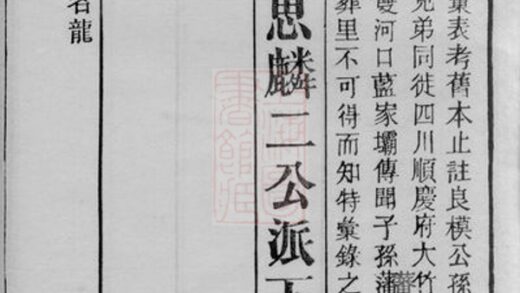 彙表考舊本止註良模公孫
兄弟同徙四川順慶府大竹
雙河口藍家壩傳聞子孫蕃
葬里不可得而知特彙錄之
思麟二公派下
名龍